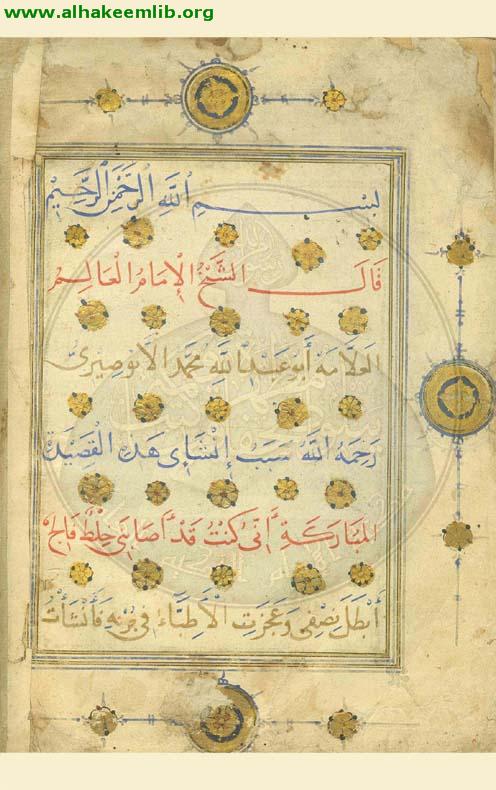 www.alhakeemlib.org
بسم الله الرحمن الرحيم
قال الشيخ الإمام العالم
العلامة أبو عبد الله محمد الأبوصيري
رحمه الله سبب إنشاي هذه القصيدة
المباركة أنى كنت قد أصابني خلط فالج
أبطل نصفي وعجزت الأطباء في فأنشأت